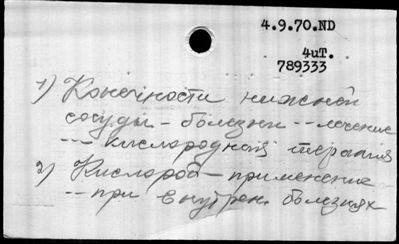 4.9.70.ND
4иТ.
789333
1) Конечности нижней
сосуды - болезни -- лечение
--- кислородная терапия
2) Кислород - применение
-- при внутрен. болезнях